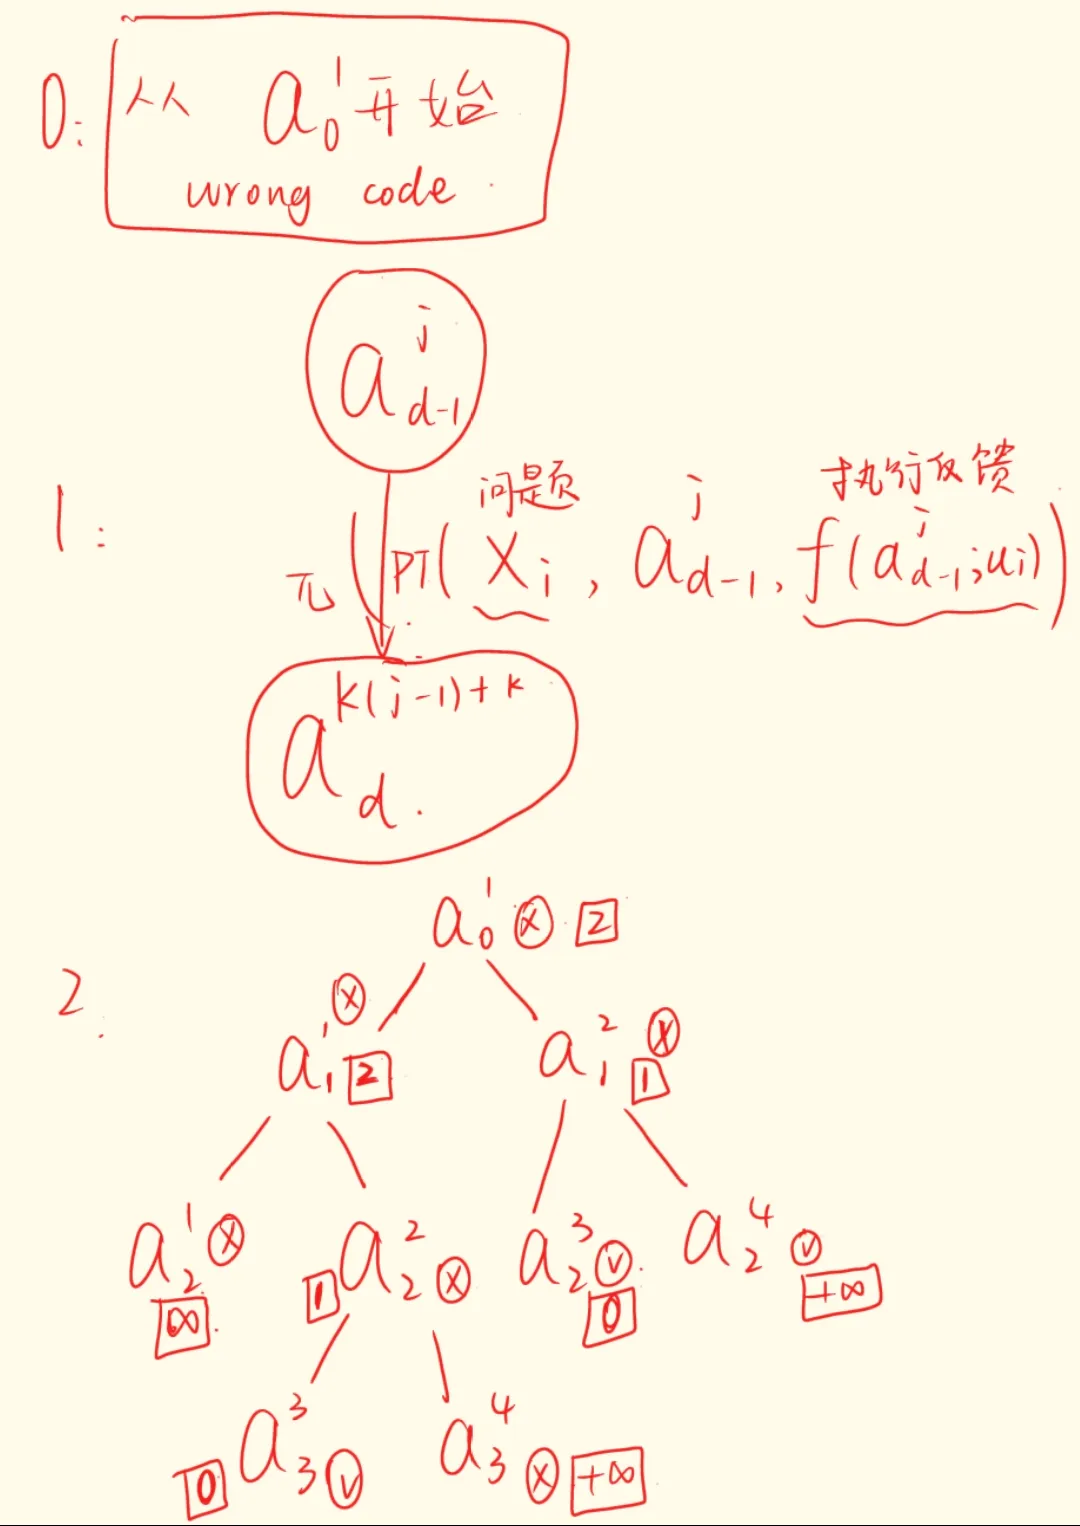 0: 从 a₀¹ 开始
wrong code.
a_{d-1}^{j}
1: π PT( 问题 x_i, a_{d-1}^{j}, 执行反馈 f(a_{d-1}^{j}; u_i))
a_d^{k(j-1)+k}
2. a₀¹ ⓧ 2
a₁¹ ⓧ 2 a₁² ⓧ 1
a₂¹ ⓧ ∞ 1 a₂² ⓧ a₂³ ⓥ 0 a₂⁴ ⓥ +∞
0 a₃³ ⓥ a₃⁴ ⓧ +∞